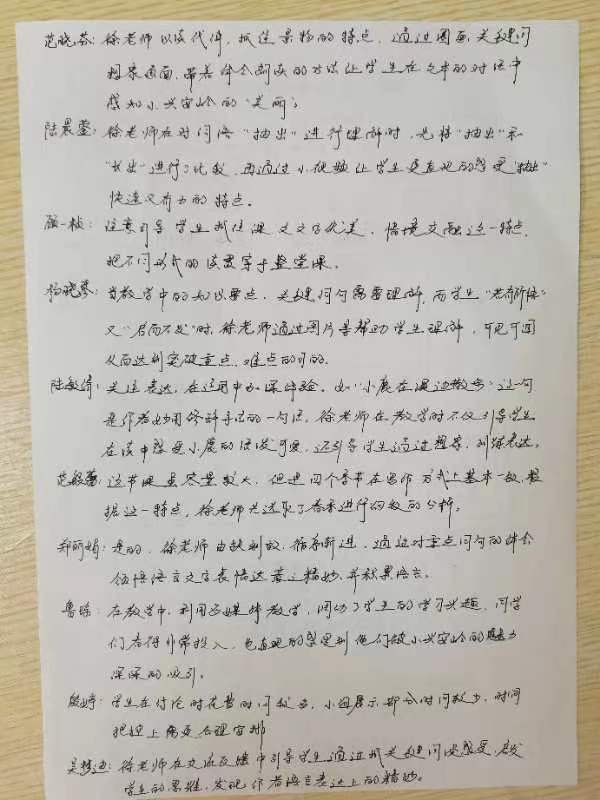 范晓芬：徐老师以读代讲，抓住景物的特点，通过图画、关键词
想象画面，带着体会阅读的方法让学生在文本的对话中
感知小兴安岭的“美丽”。
陆晨雯：徐老师在对词语“抽出”进行理解时，先将“抽出”和
“长出”进行了比较，再通过小视频让学生更直观的感受“抽出”
快速又有力的特点。
注意引导学生抓住课文文字优美、情境交融这一特点，
把不同形式的读贯穿于整堂课。
杨晓琴：当教学中的知识要点、关键词句需要理解，而学生
又“启而不发”时，徐老师通过图片等帮助学生理解，
从而达到突破重点、难点的目的。
陆敏倩：关注表达，在运用中加深体验。如“小鹿在溪边散步”这一句
是作者运用修辞手法的一句话，徐老师在教学时不仅引导学生
在读中感受小鹿的活泼可爱，还引导学生通过想象，训练表达。
这节课虽容量较大，但这四个季节在写作方式上基本一致，根
据这一特点，徐老师先选取了春季进行细致的分析。
郑丽娟：是的，徐老师由扶到放，循序渐进，通过对重点词句的体会
领悟语言文字表情达意之精妙，并积累语言。
鲁瑶：在教学中，利用多媒体教学，调动了学生的学习兴趣，同学
们看得非常投入，也直观的感受到他们被小兴安岭的魅力
深深的吸引。
殷婷：学生在讨论时花费时间较多，小组展示部分时间较少，时间
把控上需要合理安排
徐老师在交流反馈中引导学生通过抓关键词谈感受，启发
学生的思维，发现作者语言表达上的精妙。